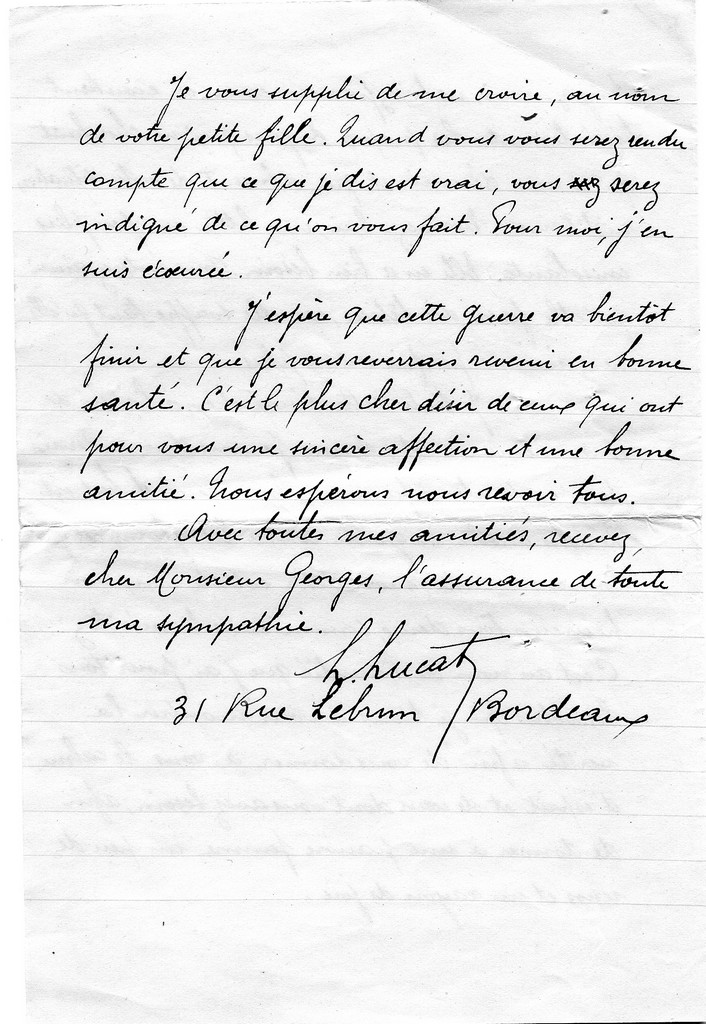 Je vous supplie de me croire, au nom
de votre petite fille. Quand vous vous serez rendu
compte que ce que je dis est vrai, vous serez
indigné de ce qu'on vous fait. Pour moi, j'en
suis écoeurée.
J'espère que cette guerre va bientôt
finir et que je vous reverrais revenir en bonne
santé. C'est le plus cher désir de ceux qui ont
pour vous une sincère affection et une bonne
amitié. Nous espérons nous revoir tous.
Avec toutes mes amitiés, recevez,
cher Monsieur Georges, l'assurance de toute
ma sympathie.
31 Rue Lebrun Bordeaux